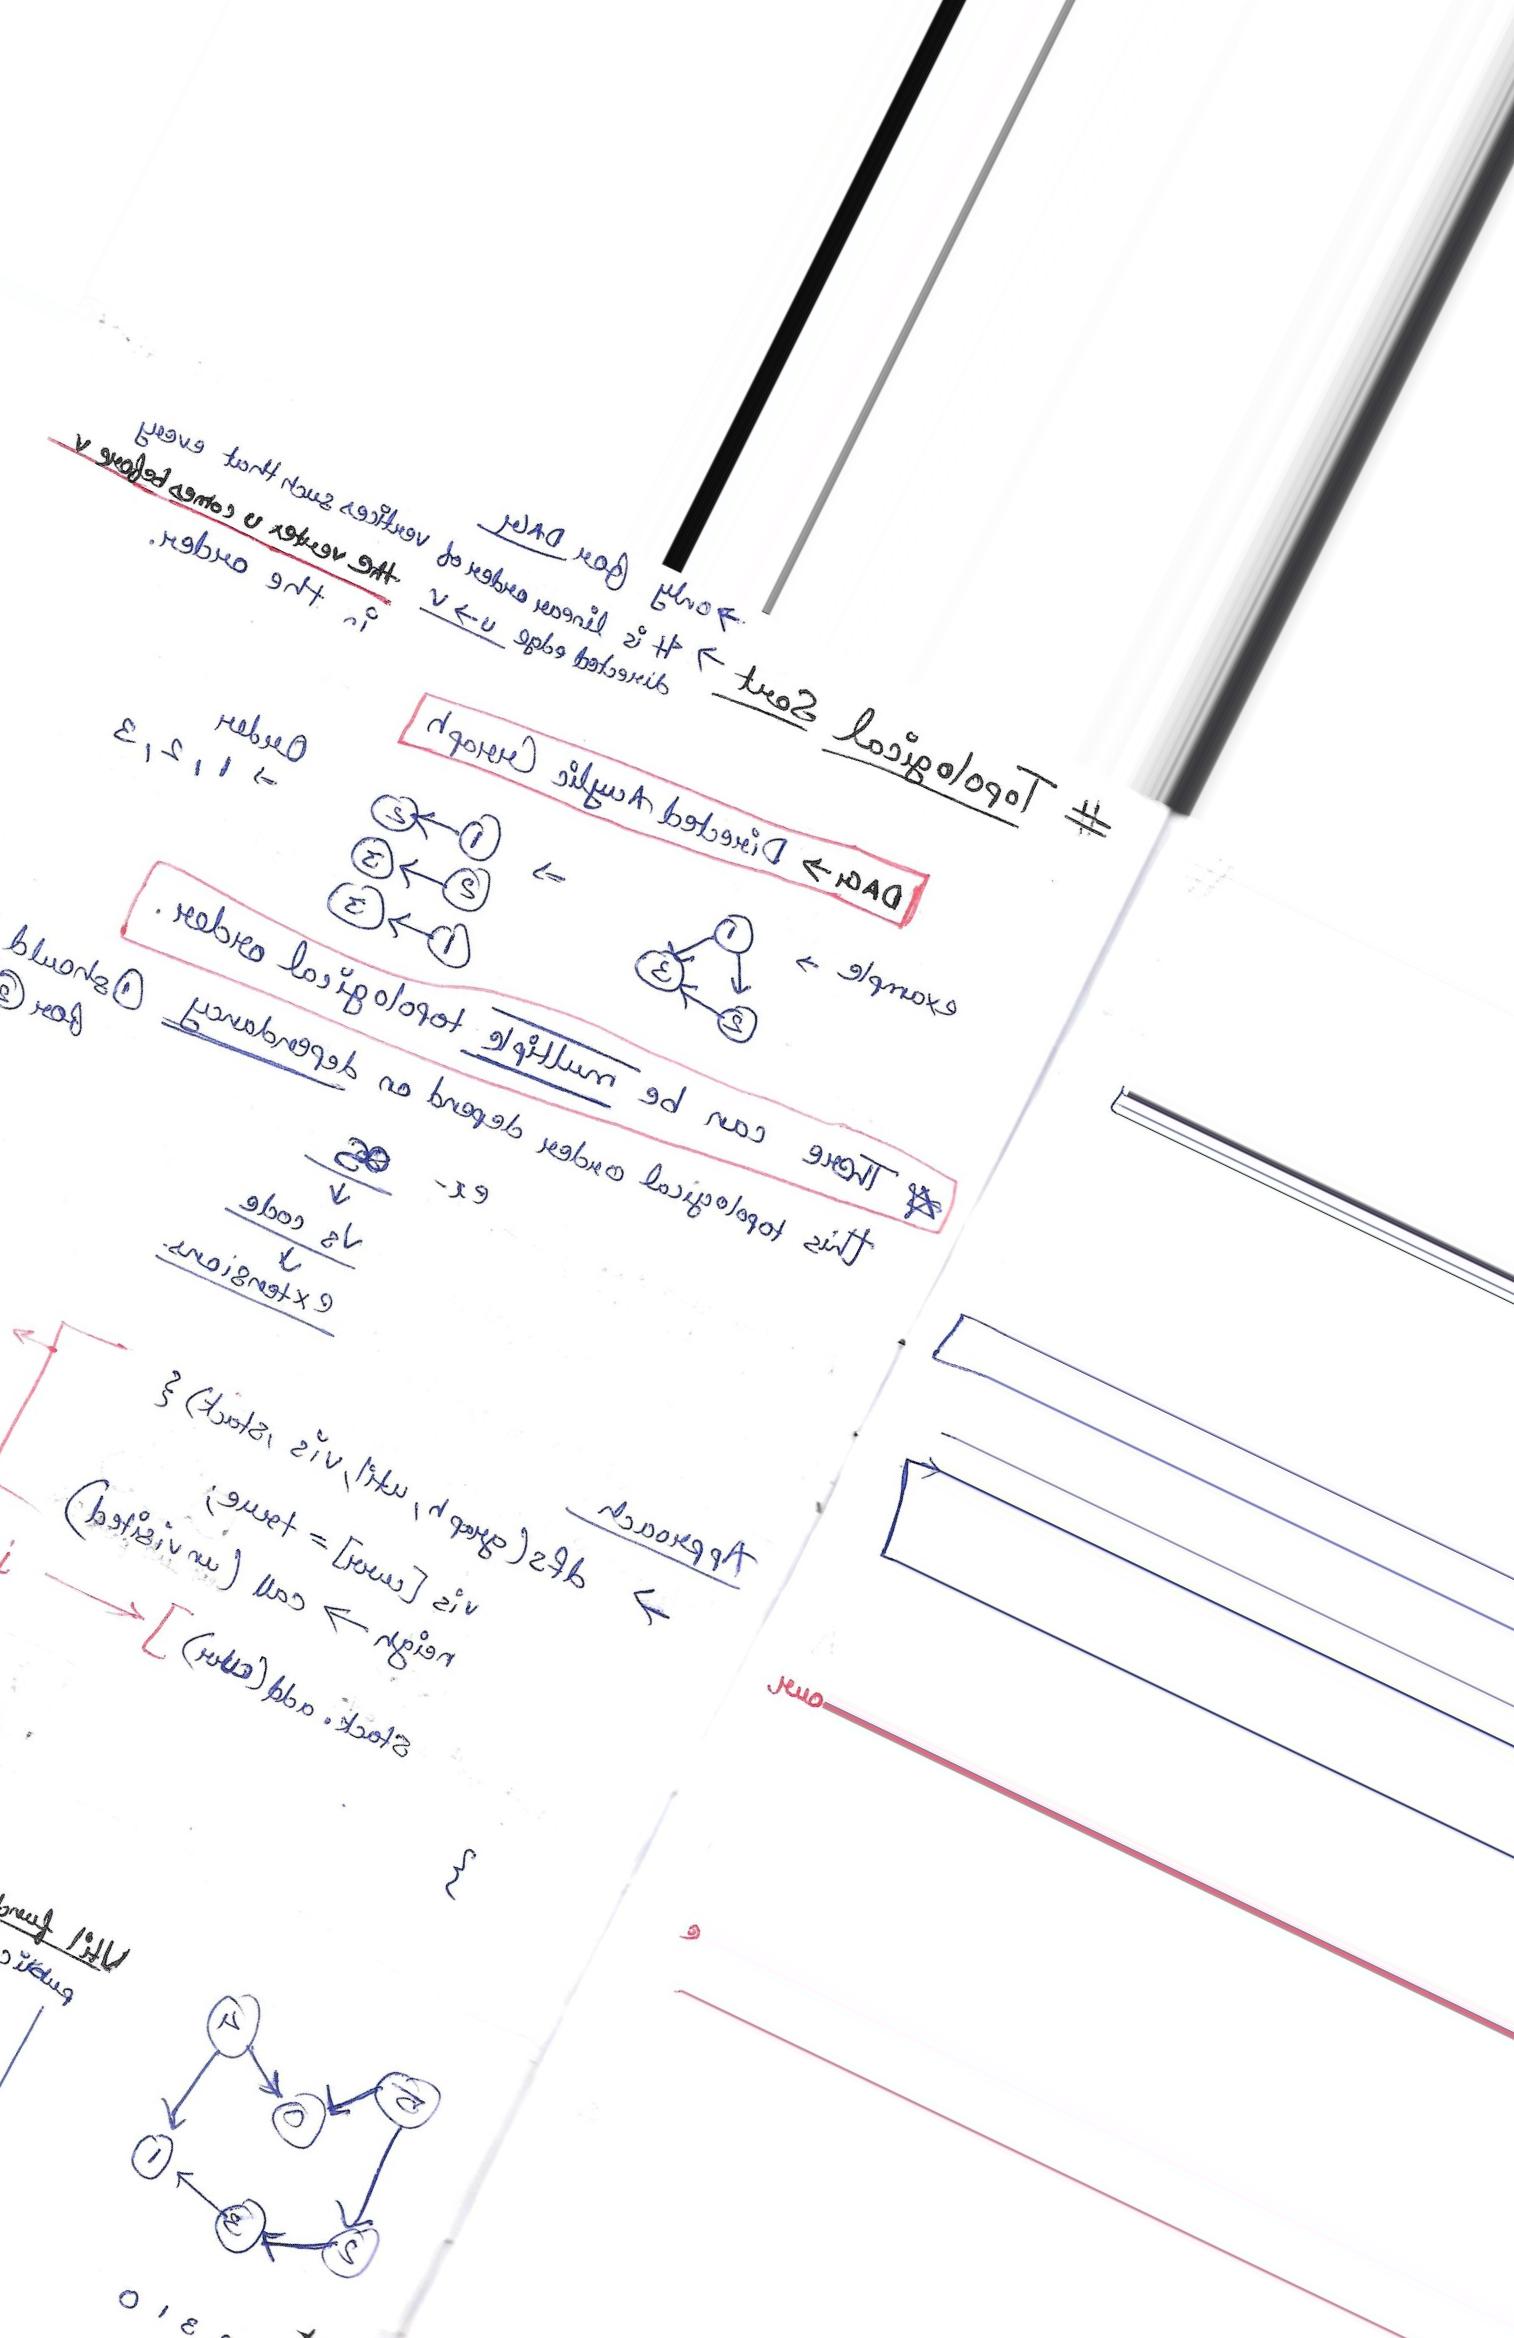 → only for DAG
# Topological Sort → It is linear order of vertices such that every
directed edge u→v the vertex u comes before v
in the order.
DAG → Directed Acyclic Graph
example → 1 2 3 ⇒ 1→2 ⇒ 1, 2, 3
2→3 Order
1→3
There can be multiple topological order.
this topological order depend on dependancy 1 should
for 2
ex- OS
↓
VS code
↓
extensions.
Approach
→ dfs(graph, util, vis, stack) {
vis [curr] = true;
neigh → call (unvisited)
stack. add(curr)
}
Util
public
4 5
0
1
3 2
3 1 0